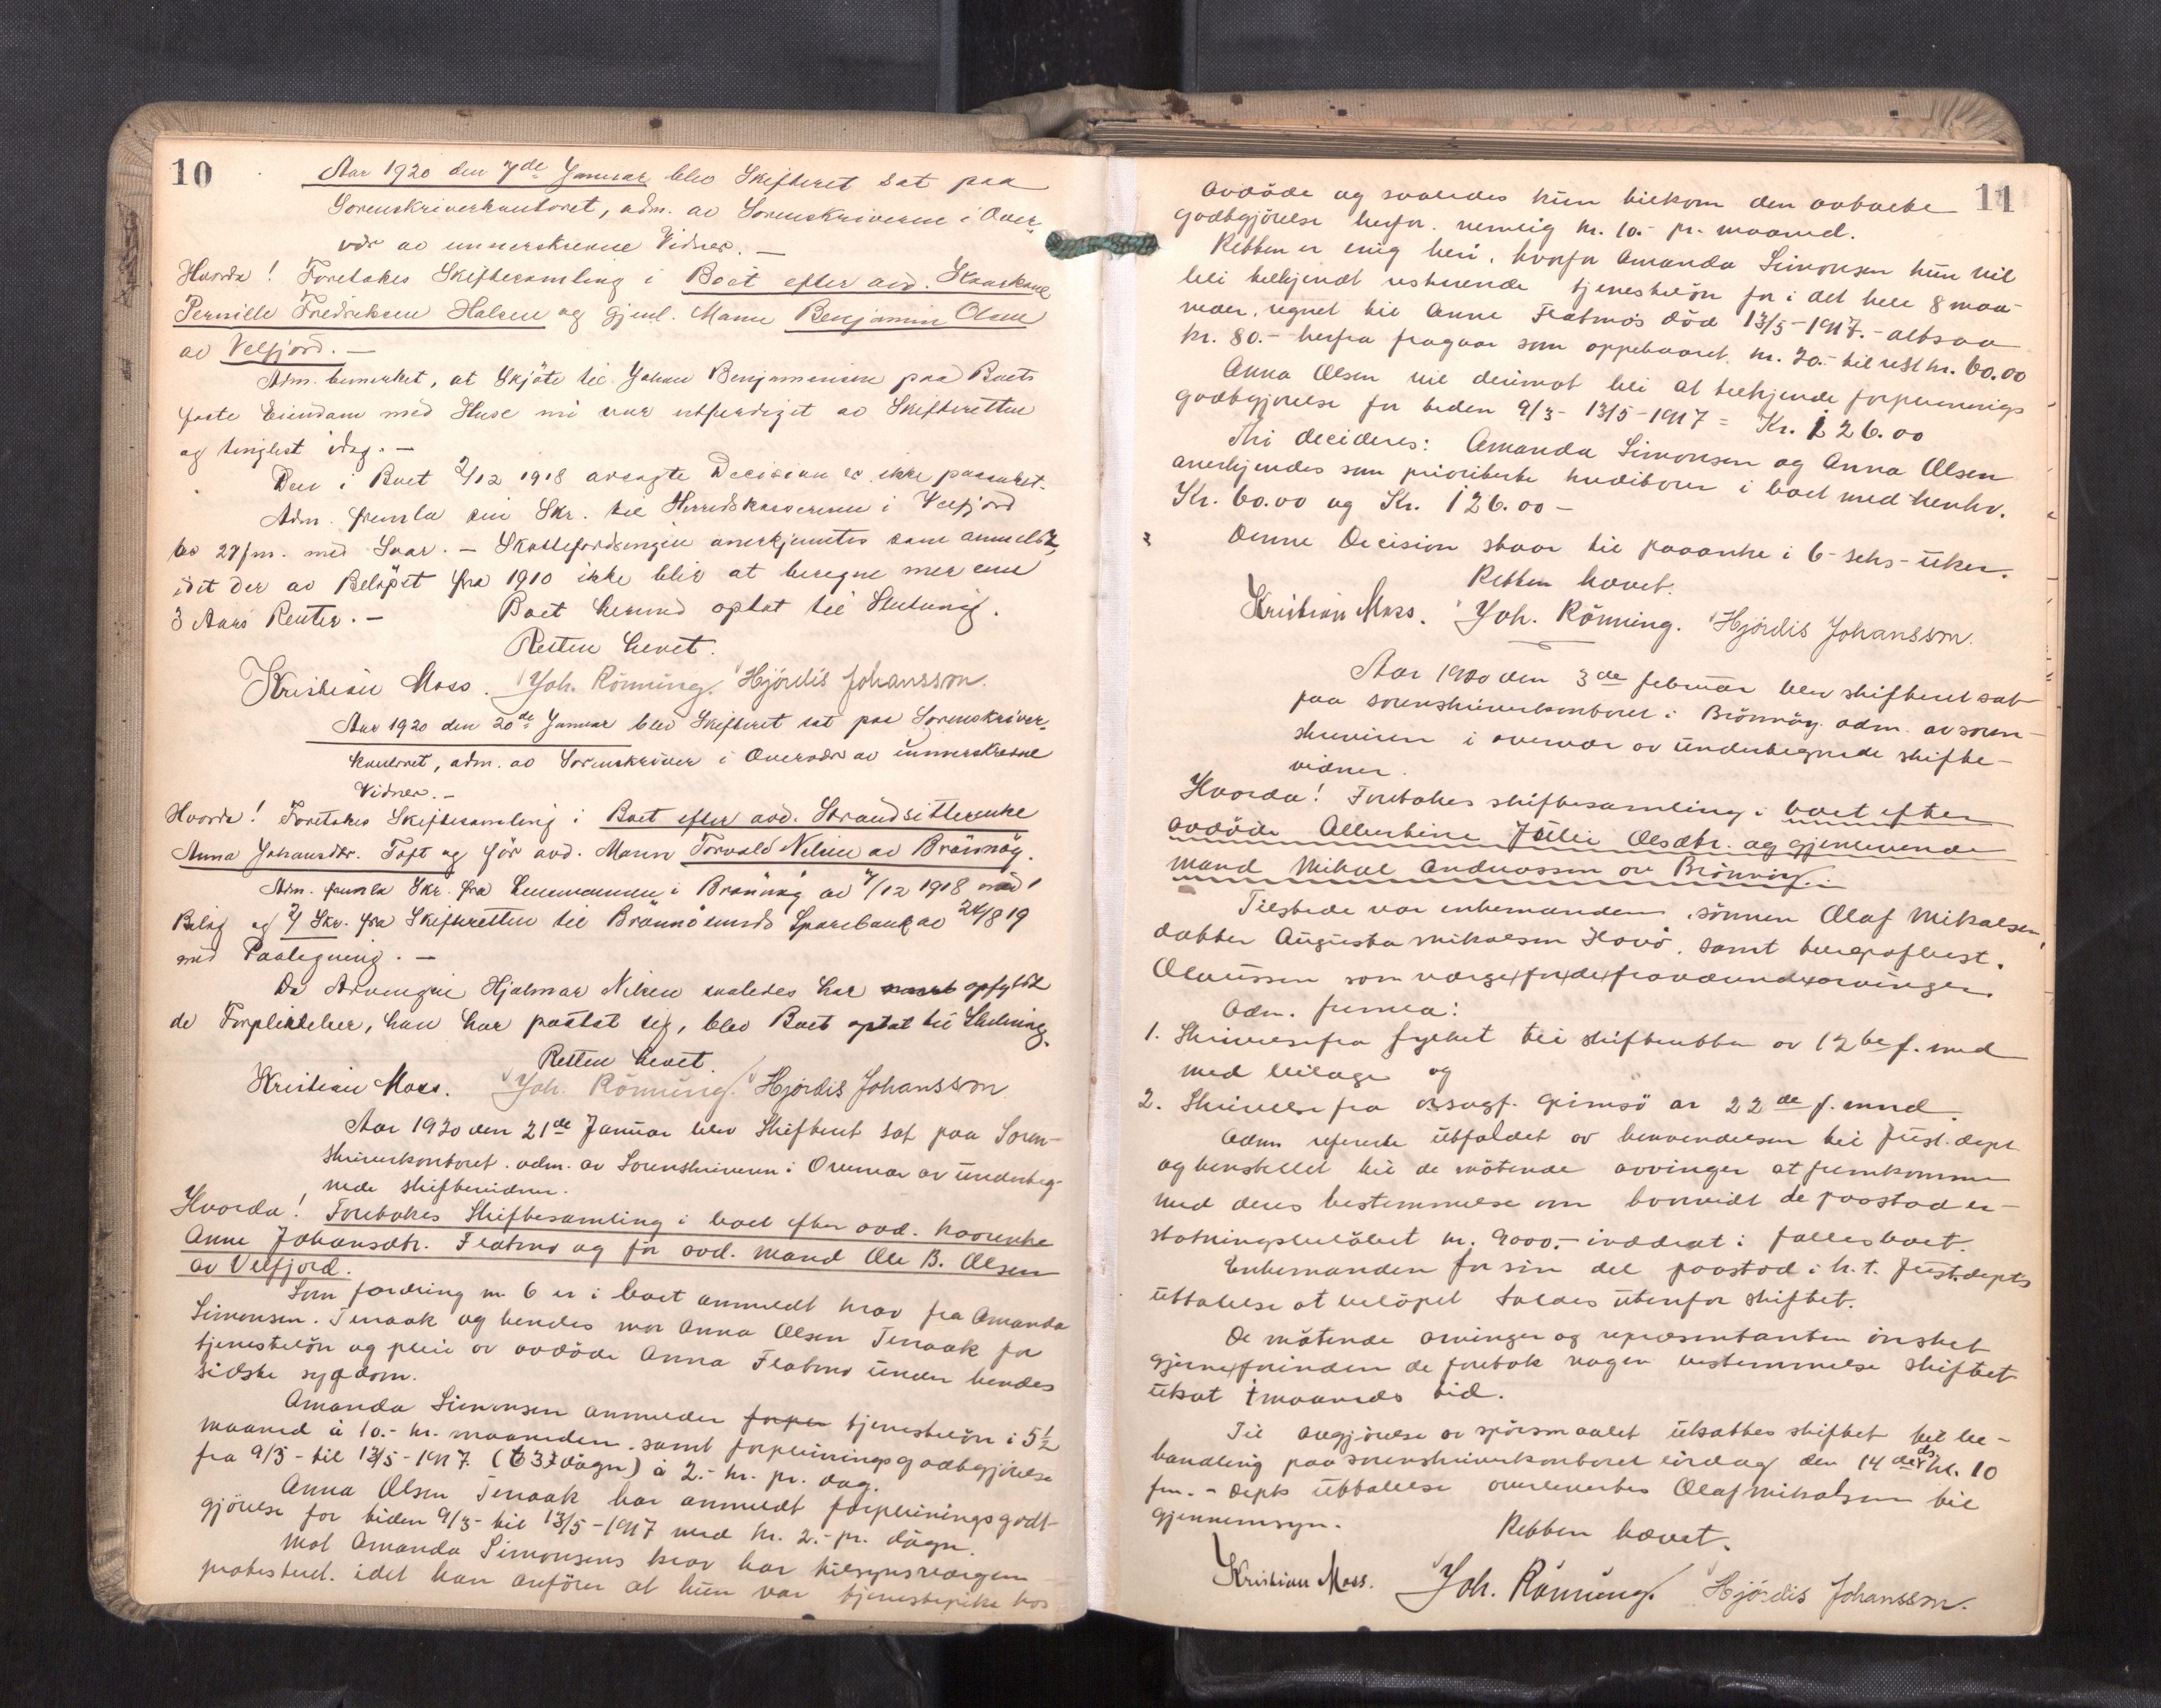 10
Aar 1920 den 7de Januar blev Skifteret sat paa
Sorenskriverkontoret, adm. av Sorenskriveren i Over-
vær av unnerskrevne Vidner. —
Hvorda! Foretakes Skiftesamling i Boet efter avd.
Pernille Fredriksen Halsen og Gjenl. Mann Benjamin Olsen
av Velfjord. —
Adm. bemerket, at Skjøte til Johan Benjaminsen paa Boets
faste Eiendom med Huse nu var utferdiget av Skifteretten
og tinglest idag. —
Den i Boet 2/12 1918 avsagte Decision er ikke paaanket.
Adm. fremla sin Skr. til Herredskassereren i Velfjord
av 27 f.m. med Svar. — Skattefordringen anerkjentes som anmeldt,
idet der av Beløpet fra 1910 ikke blir at beregne mer enn
3 Aars Renter. — Boet hermed optat til Slutning.
Retten hevet.
Kristian Moss. Joh. Rönning. Hjördis Johansson.
Aar 1920 den 20de Januar blev Skifteret sat paa Sorenskriver-
kontoret, adm. av Sorenskriver i Overvær av unnerskrevne
Vidner. —
Hvorda! Foretakes Skiftesamling i Boet efter avd. Strandsitterenke
Anna Johansdtr. Toft og før avd. Mann Torvald Nilsen av Brønnøy.
Adm. fremla Skr. fra Lensmannen i Brønnøy av 7/12 1918 med 1
Bilag og 2/ Skr. fra Skifteretten til Brønnøysunds Sparebank av 24/8 19
med Paategning. —
Da Arvingen Hjalmar Nilsen saaledes har opfyldt
de Forpliktelser, han har paatat sig, blev Boet optat til Slutning.
Retten hevet.
Kristian Moss. Joh. Rönning. Hjördis Johansson.
Aar 1920 den 21de Januar blev Skifteret sat paa Soren-
skriverkontoret. adm. av Sorenskriveren i Overvær av underteg-
nede skiftevidner.
Hvorda! Foretakes Skiftesamling i boet efter avd. kaarenke
Anne Johansdtr. Flatmo og før avd. mand Ole B. Olsen
av Velfjord.
Som fordring nr 6 er i boet anmeldt krav fra Amanda
Simonsen. Tenaak og hendes mor Anna Olsen Tenaak for
tjenesteløn og pleie av avdøde Anna Flatmo under hendes
sidste sygdom.
Amanda Simonsen anmelder forper tjenesteløn i 5 1/2
maaned à 10.- kr. maaneden. samt forpleiningsgodtgjørelse
fra 9/3 - til 13/5 - 1917. (63 døgn) à 2.- kr. pr. dag.
Anna Olsen Tenaak har anmeldt forpleiningsgodt-
gjørelse for tiden 9/3 - til 13/5 - 1917 med kr. 2.- pr. døgn.
Mot Amanda Simonsens krav har tilsynsværgen
protestert. idet han anfører at hun var tjenestepike hos
11
avdøde og saaledes kun tilkom den avtalte
godtgjørelse herfor. nemlig kr. 10.- pr. maaned.
Retten er enig heri, hvorfor Amanda Simonsen kun vil
bli tilkjendt resterende tjenesteløn for i det hele 8 maa-
neder, regnet til Anne Flatmos død 13/5 - 1917. - altsaa
kr. 80.- herfra fragaar som oppebaaret kr. 20.- til rest kr. 60.00
Anna Olsen vil derimot bli at tilkjende forpleinings
godtgjørelse for tiden 9/3 - 13/5 - 1917 = Kr. 126.00
Thi decideres: Amanda Simonsen og Anna Olsen
anerkjendes som prioriterte kreditorer i boet med henhv.
Kr. 60.00 og Kr. 126.00 -
Denne Decision staar til paaanke i 6 - seks - uker.
Retten hævet.
Kristian Moss. Joh. Rönning. Hjördis Johansson.
Aar 1920 den 3de februar blev skifteret sat
paa sorenskriverkontoret i Brønnøy. adm. av soren-
skriveren i overvær av undertegnede skifte-
vidner.
Hvorda! Foretakes skiftesamling i boet efter
avdøde Albertine Julie Olsdtr. og gjenlevende
mand Mikal Andreassen av Brønnøy.
Tilstede var enkemanden, sønnen Olaf Mikalsen,
datter Augusta Mikalsen Horn. samt telegrafbest.
Olaussen som værge for de fraværende arvinger.
Adm. fremla:
1. Skrivelse fra fylket til skifteretten av 12te f. mnd
med bilage og
2. Skrivelse fra Gimsö av 22de f. mnd.
Adm refererte utfaldet av henvendelsen til Just. dept
og henstillet til de møtende arvinger at fremkomme
med deres bestemmelse om hvorvidt de paastod er-
statningsbeløbet kr. 9000,- inddrat i fællesboet.
Enkemanden for sin del paastod i h. t. Just. depts
uttalelse at beløpet holdes utenfor skiftet.
De møtende arvinger og repræsentanten ønsket
gjerne forinden de foretok nogen bestemmelse skiftet
utsat 1 maaneds tid.
Til avgjørelse av spørsmaalet utsattes skiftet til be-
handling paa sorenskriverkontoret lørdag den 14de ds. kl. 10
fm. - Depts uttalelse overlevertes Olaf Mikalsen til
gjennemsyn.
Retten hævet.
Kristian Moss. Joh. Rönning. Hjördis Johansson.